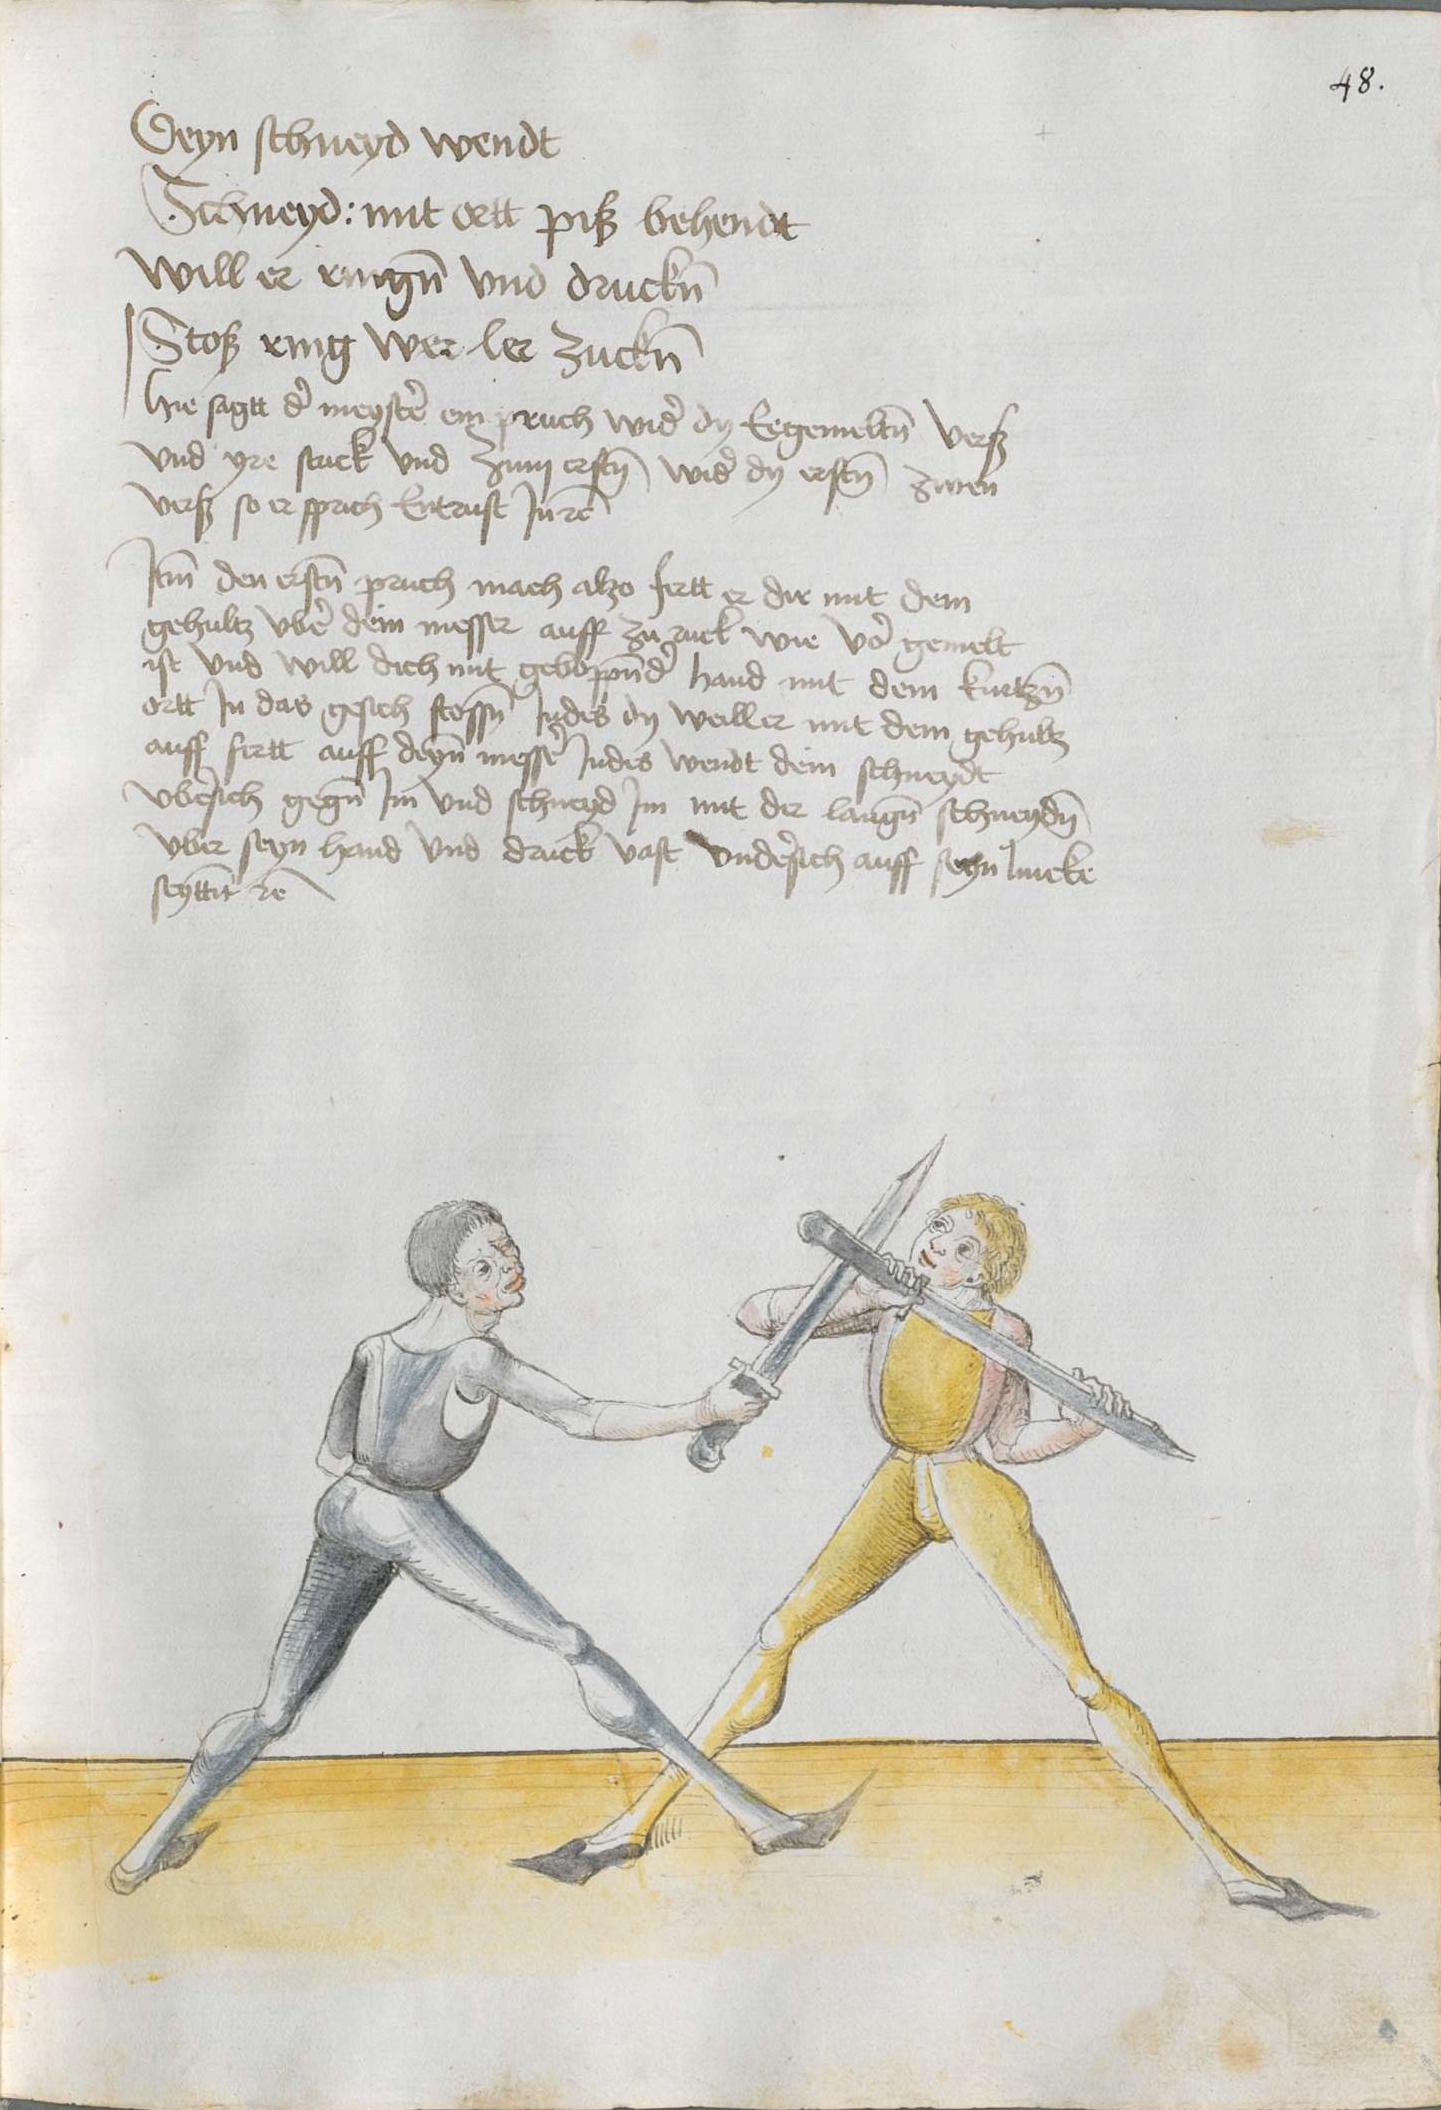 48.
Deyn schneyd wendt
Schneyd: mit ortt piß behendt
Will er ringn̄ vnd druckn̄
Stoß ring wer ler zuckn̄
hie sagtt d' meyst' ein pruch wid' dy Eegemeltn̄ verß
vnd yre stuck vnd zum erstn̄ wid' dy erstn̄ zwen
verß so er sprich Entrust In rē
Itm̄ den erstn̄ pruch mach alzo fertt er dir mit dem
gehultz vb' dein messer auff zu ruck wie vor gemelt
ist vnd will dich mit gewopn̄d' hand mit dem kurtzn̄
ortt In das gesich stossn̄ Indes dy weill er mit dem gehultz
auff fertt auff deyn̄ mess' Indes wendt dein schneydt
vb'sich gegn̄ Im vnd schneyd Im mit der langn̄ schneydn̄
vber seyn hand vnd druck vast vnd'sich auff seyn lincke
seyttn̄ rē